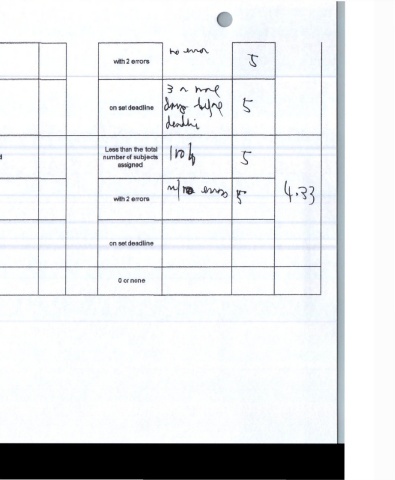 with 2 errors no error 5
on set deadline 3 or more
days before
deadline 5
d
Less than the total
number of subjects
assigned 100% 5
with 2 errors errors 5 4.33
on set deadline
0 or none